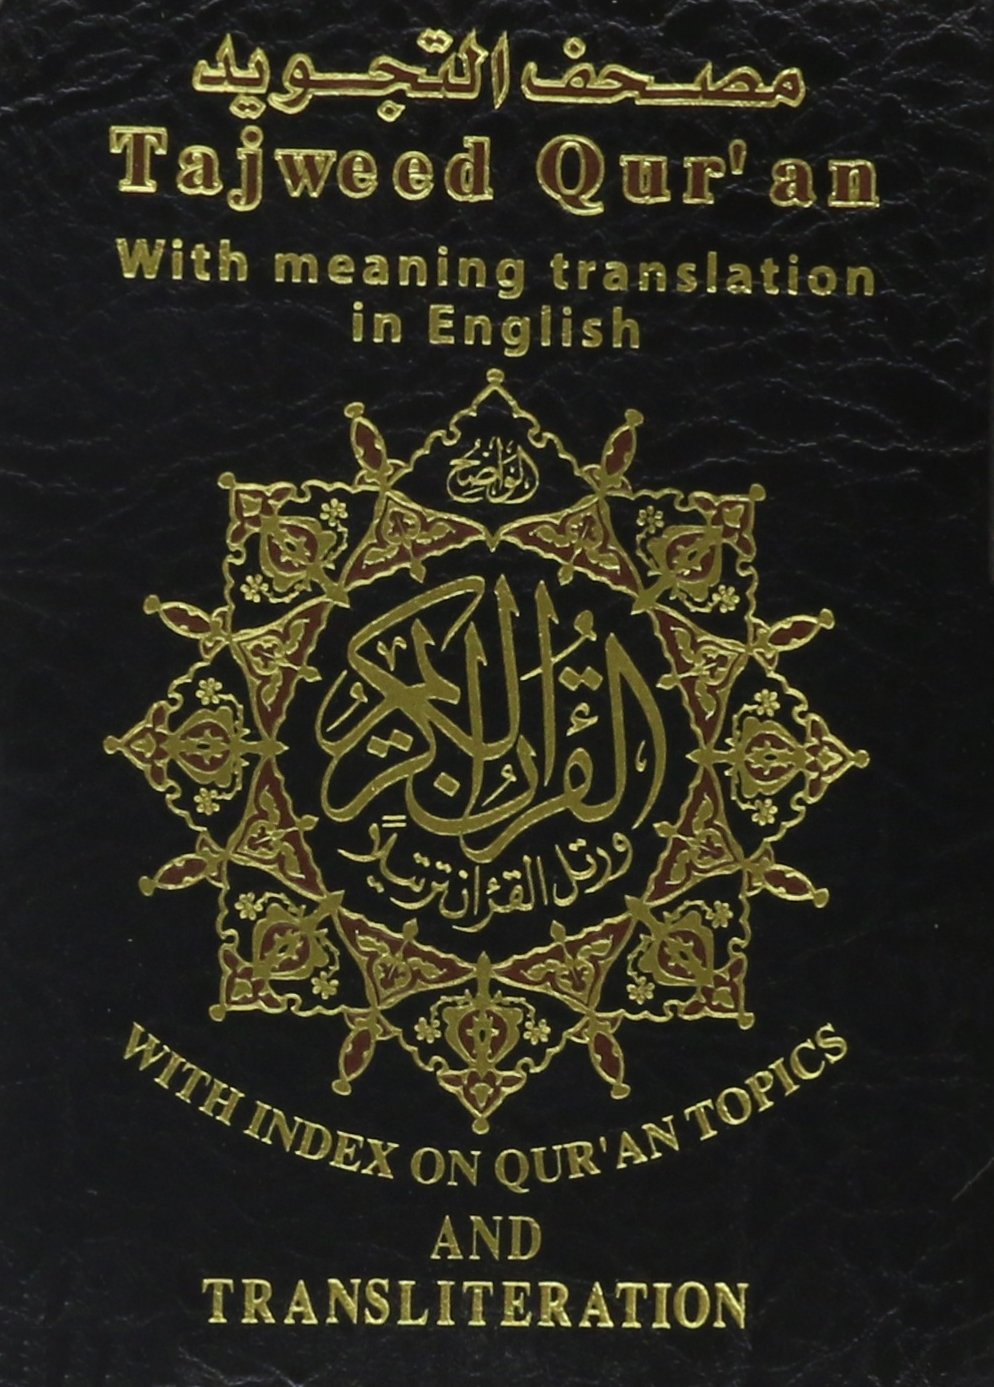 مصحف التجويد
Tajweed Qur'an
With meaning translation
in English
الواضح
القرآن الكريم
ورتل القرءان ترتيلاً
WITH INDEX ON QUR'AN TOPICS
AND
TRANSLITERATION